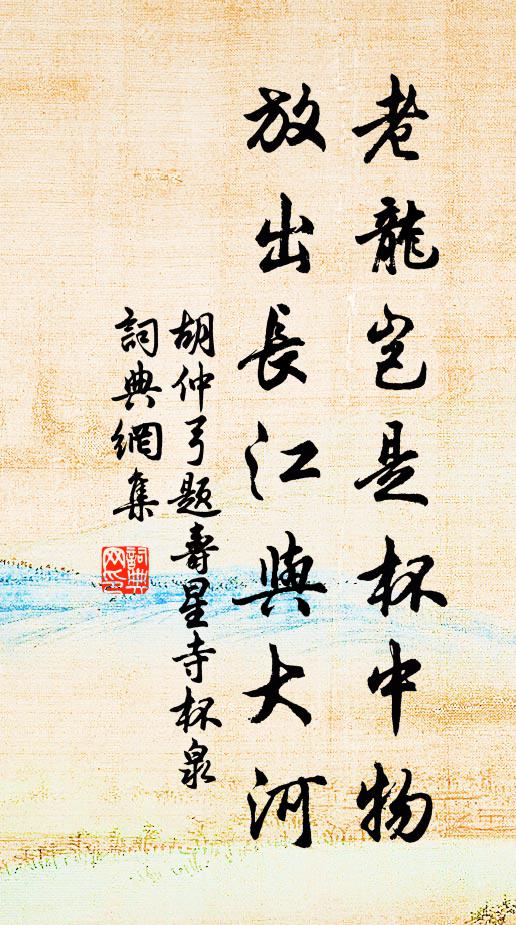 老龍豈是杯中物
放出長江與大河
胡仲弓題壽星寺杯泉
詞典網集
詞典網印